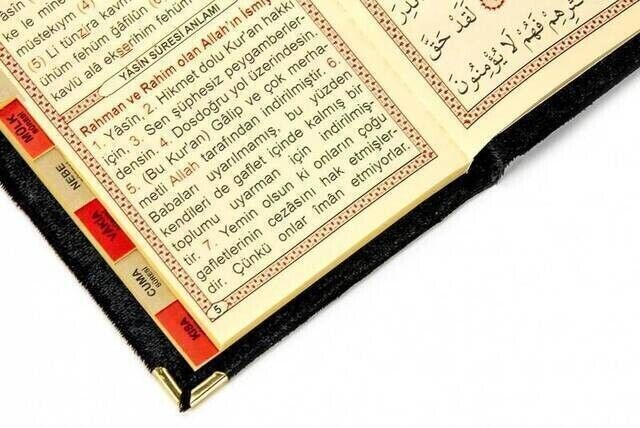 ke le mine
müstekıym (4)
(5) Li tünzira kavmen
ühüm fehüm ğâfilûn (6)
kavlü alâ ekserihim fehüm
YÂSİN SÛRESİ ANLAMI
Rahman ve Rahim olan Allah'ın İsmiy
1. Yâsîn. 2. Hikmet dolu Kur'an hakkı
için, 3. Sen şüphesiz peygamberler-
densin. 4. Dosdoğru yol üzerindesin.
5. (Bu Kur'an) Gâlip ve çok merha-
metli Allah tarafından indirilmiştir. 6.
Babaları uyarılmamış, bu yüzden
kendileri de gaflet içinde kalmış bir
toplumu uyarman için indirilmiş-
tir. 7. Yemin olsun ki onların çoğu
gafletlerinin cezâsını hak etmişler-
dir. Çünkü onlar îmân etmiyorlar.
5
لَقَدْ حَقَّ
فَهُمْ لَا يُؤْمِنُونَ
MÜLK
SÛRESİ
NEBE
VAKIA
CUMA
SÛRESİ
KISA